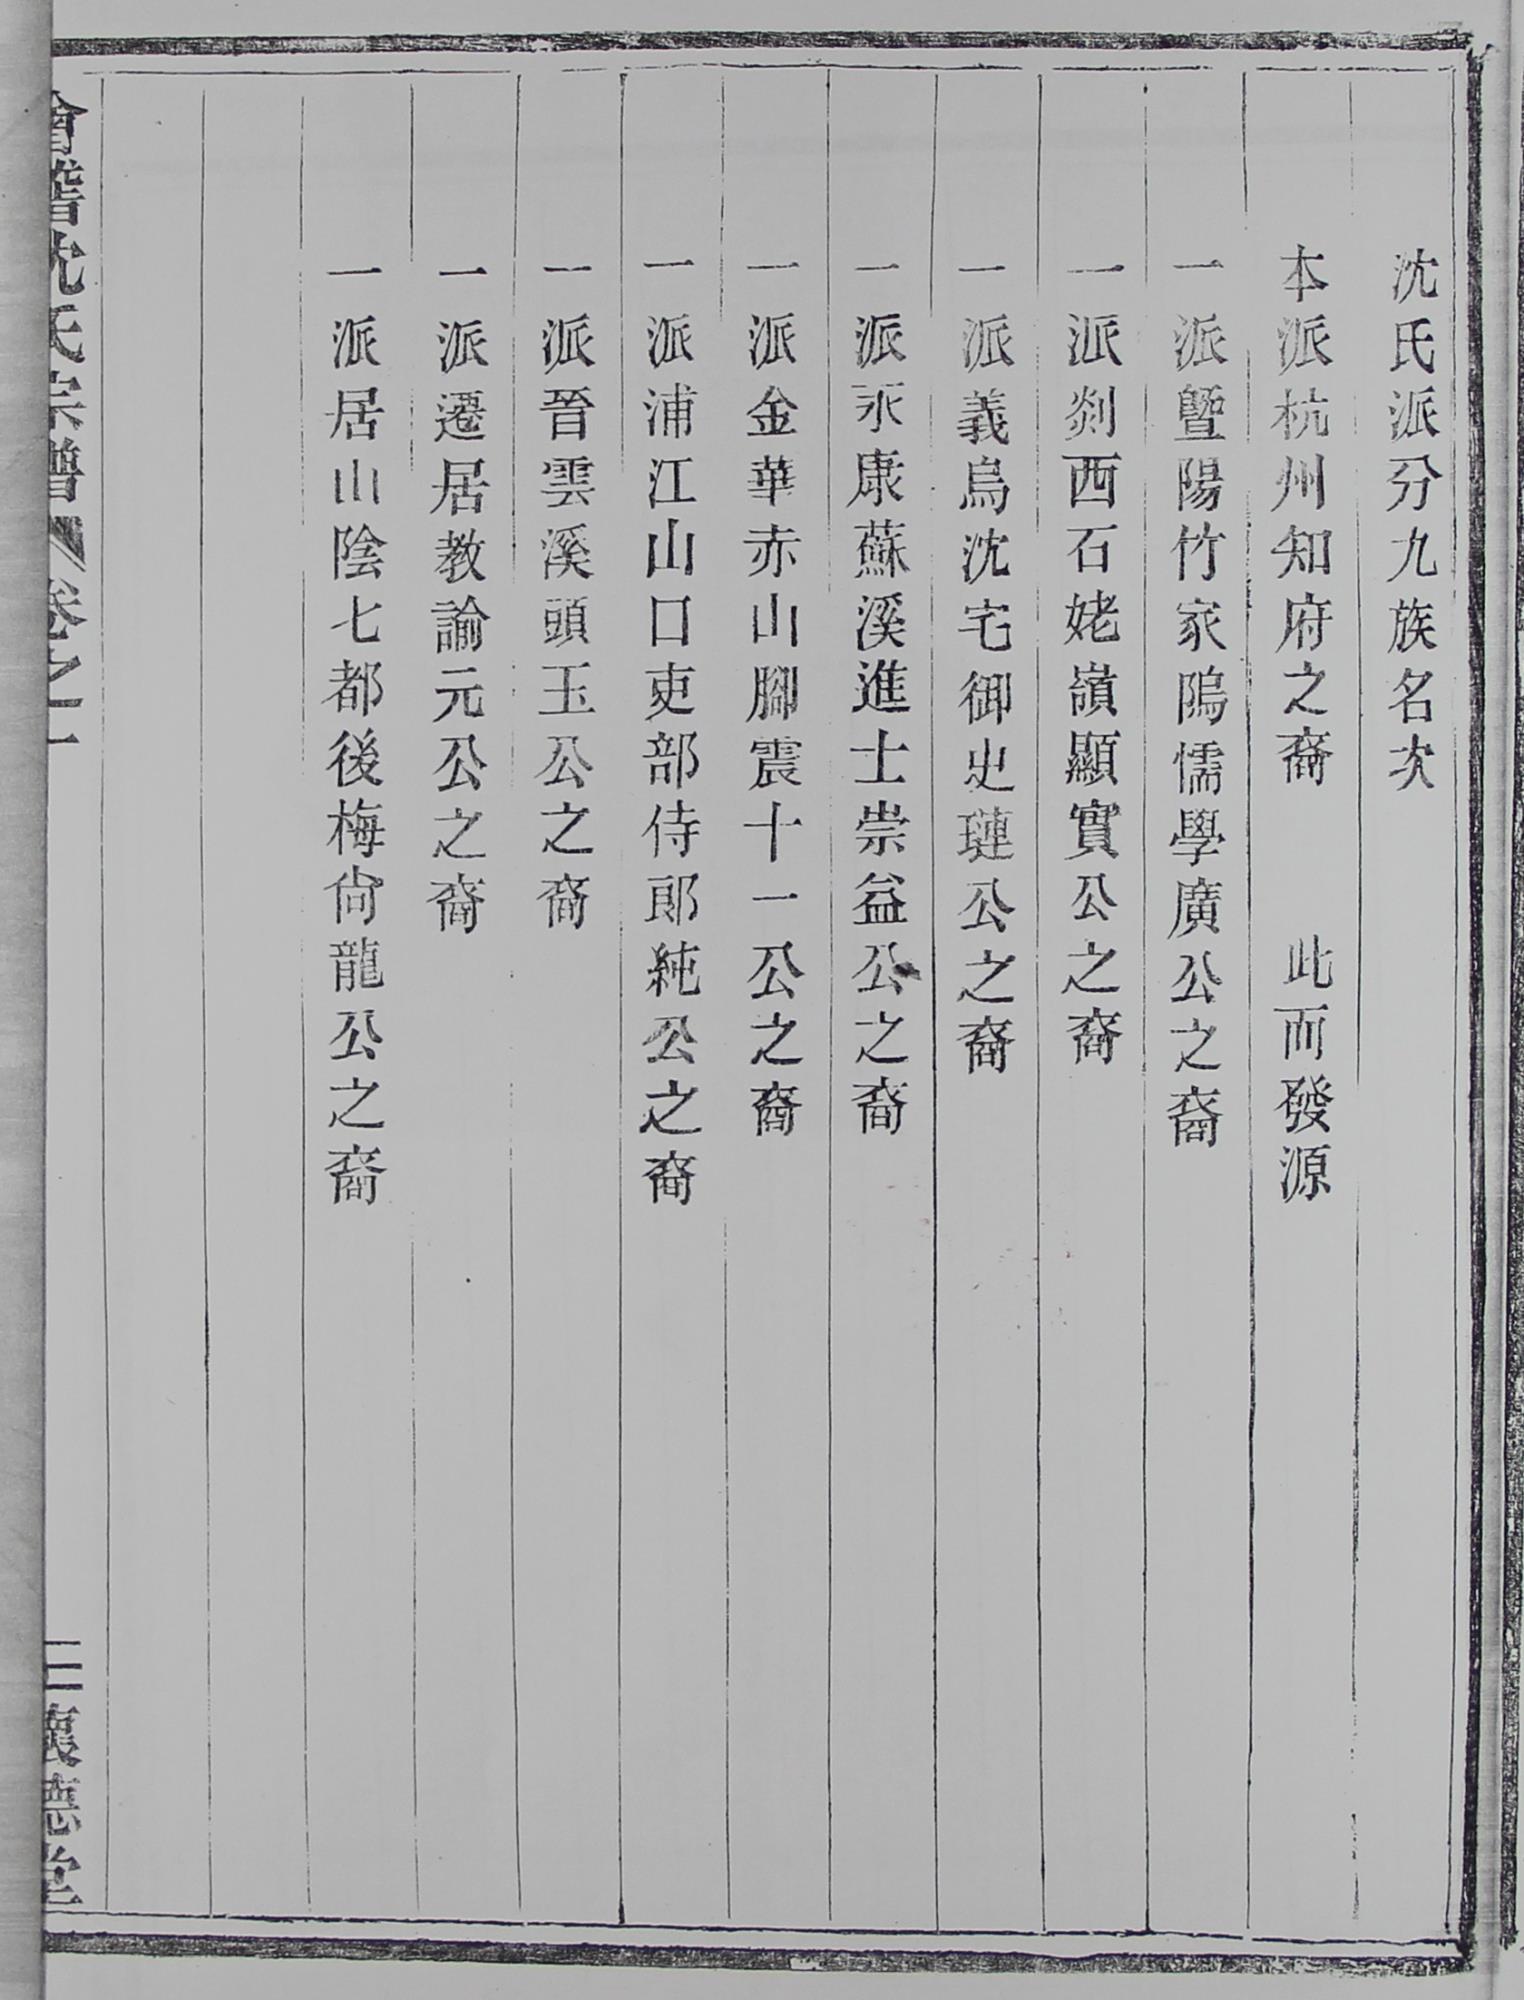 沈氏派分九族名次
本派杭州知府之裔　　此而發源
一派暨陽竹家隖儒學廣公之裔
一派剡西石姥嶺顯實公之裔
一派義烏沈宅御史璉公之裔
一派永康蘇溪進士崇益公之裔
一派金華赤山腳震十一公之裔
一派浦江山口吏部侍郎純公之裔
一派晉雲溪頭玉公之裔
一派遷居教諭元公之裔
一派居山陰七都後梅尙龍公之裔
會稽沈氏宗譜　卷之一　二　懷德堂